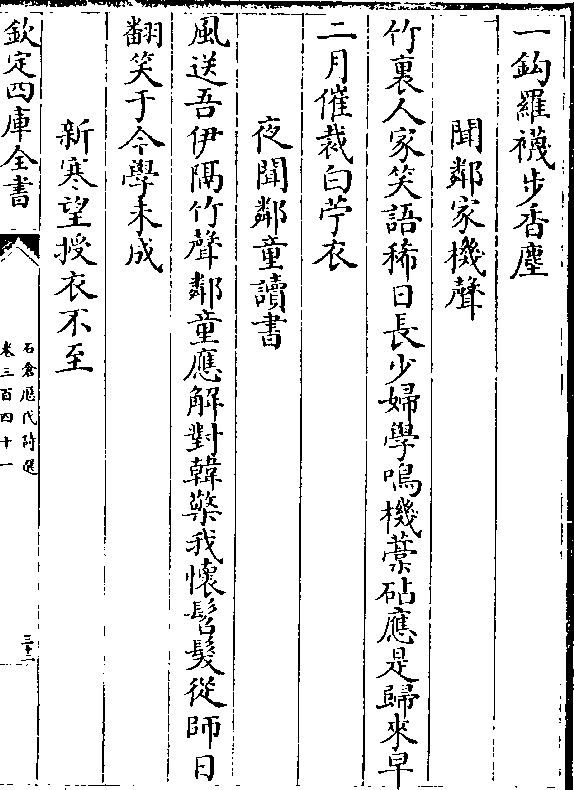 一鈎羅襪步香塵
聞鄰家機聲
竹裏人家笑語稀日長少婦學鳴機藁砧應是歸來早
二月催裁白苧衣
夜聞鄰童讀書
風送吾伊隔竹聲鄰童應解對韓檠我懷髫髮從師日
翻笑于今學未成
新寒望授衣不至
欽定四庫全書
石倉歷代詩選
卷三百四十一
三十二